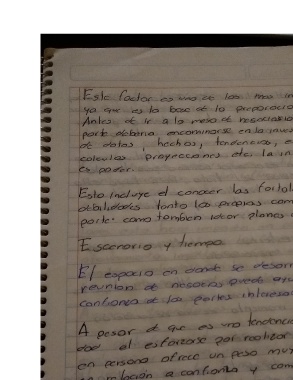 Este factor es uno de los mas im
ya que es la base de la preparació
Antes de ir a la mesa de negociació
parte debería encaminarse en la inves
de datos, hechos, tendencias, e
calculos proyecciones etc. la in
es poder.
Esto incluye el conocer las fortal
debilidades tanto las propias com
parte: como tambien idear planes
Escenario y tiempo
El espacio en donde se desarr
reunion de negocios puede ay
confianza de las partes interesa
A pesar de que es una tendencia
dad el esforzarse por realizar
en persona ofrece un peso muy
relación a confianza y com